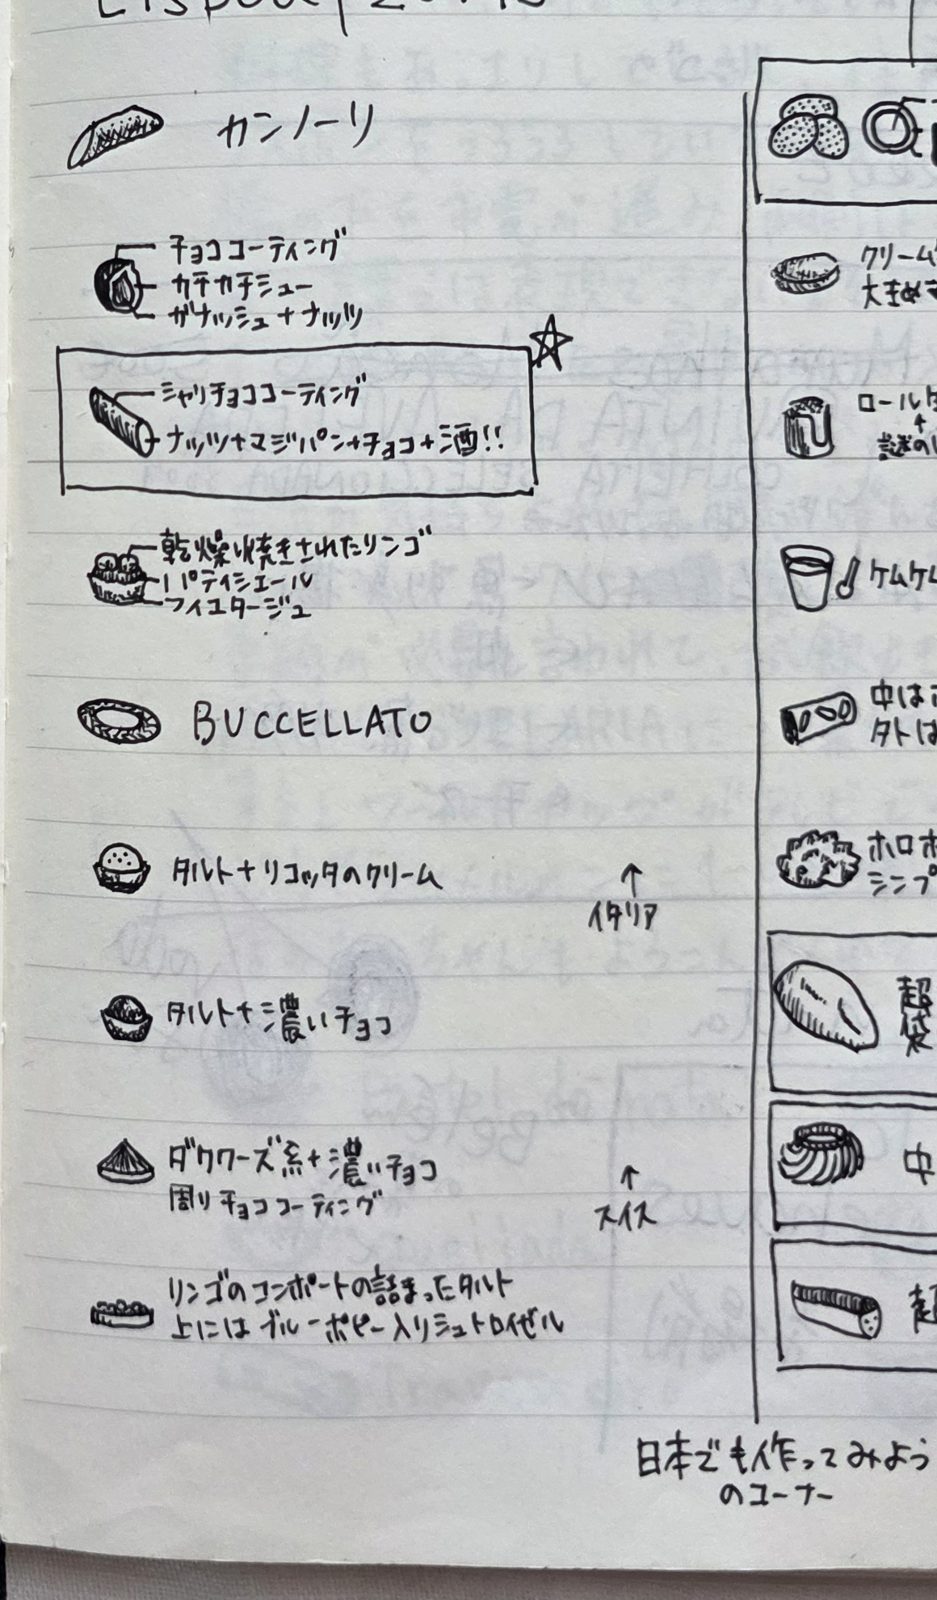 カンノーリ
チョココーティング
カチカチシュー
ガナッシュ+ナッツ
シャリチョココーティング
ナッツ+マジパン+チョコ+酒!!
乾燥い焼きされたリンゴ
パティシエール
フイユタージュ
BUCCELLATO
タルト+リコッタのクリーム
↑
イタリア
タルト+濃いチョコ
ダクワーズ系+濃いチョコ
周りチョココーティング
↑
スイス
リンゴのコンポートの詰まったタルト
上にはブルーポピー入りシュトロイゼル
クリーム
大きめ
ロール
+
謎の
ケムケム
中は
外は
ホロホ
シンプ
超
袋
中
超
日本でも作ってみよう
のコーナー